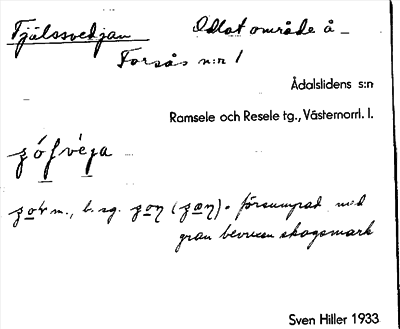 Tjälssvedjan Odlat område å
Forsås n:r 1
Ådalslidens s:n
Ramsele och Resele tg., Västernorrl. l.
m., b. sg. försumpad med
gran bevuxen skogsmark
Sven Hiller 1933